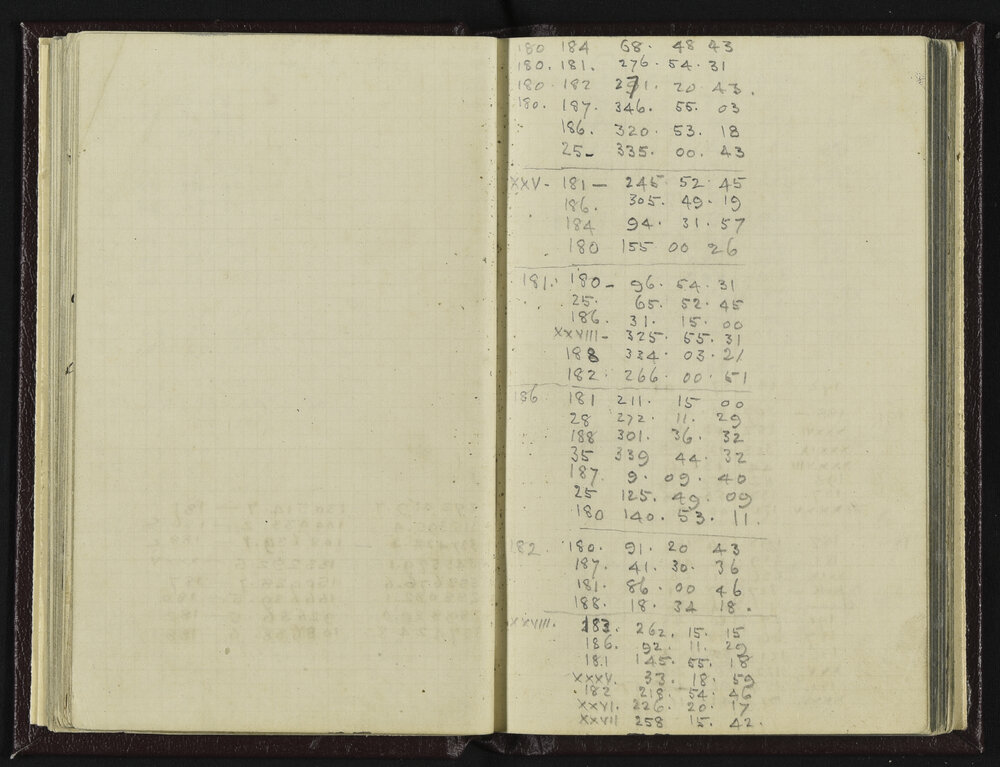 180 184 68. 48 43
180. 181. 276. 54. 31
180. 182 271. 20 43.
180. 187. 346. 55. 03
186. 320. 53. 18
25- 335. 00. 43
XXV- 181- 245 52. 45
186. 305. 49. 19
184 94. 31. 57
180 155 00 26
181. 180- 96. 54. 31
25. 65. 52. 45
186. 31. 15. 00
XXVIII- 325. 55. 31
188 334. 03. 21
182. 266. 00. 51
186 181 211. 15 00
28 272. 11. 29
188 301. 36. 32
35 339 44. 32
187. 9. 09. 40
25 125. 49. 09
180 140. 53. 11.
182. 180. 91. 20 43
187. 41. 30. 36
181. 86. 00 46
188. 18. 34 18.
XXVIII. 183. 262. 15. 15
186. 92. 11. 29
181 145. 55. 18
XXXV. 33. 18. 59
182 218. 54. 46
XXVI. 226. 20. 17
XXVII 258 15. 42.